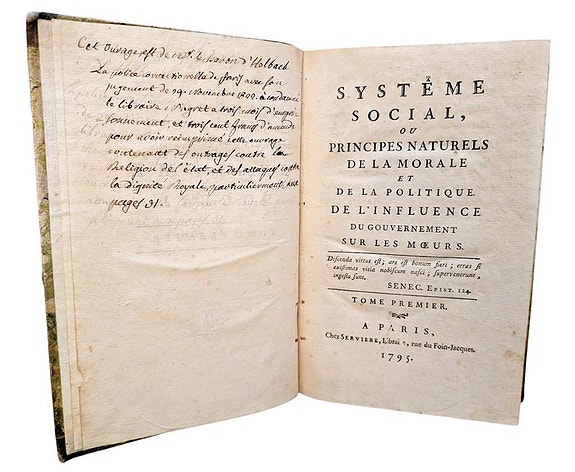 Cet ouvrage est de Mr. le Baron d'Holbach
La police correctionnelle de paris avec son
jugement du 29. Novembre 1822. a condamné
le libraire Niogret a trois mois d'empri-
sonnement, et trois cent francs d'amende
pour avoir reimprimé cette ouvrage
contenant des outrages contre la
Religion de l'état, et des attaques contre
la dignité Royale, particulierement, aux
pages 31.
SYSTÊME
SOCIAL,
OU
PRINCIPES NATURELS
DE LA MORALE
ET
DE LA POLITIQUE.
DE L'INFLUENCE
DU GOUVERNEMENT
SUR LES MŒURS.
Discenda virtus est; ars est bonum fieri; erras si
existimas vitia nobiscum nasci; supervenerunt,
ingesta sunt.
SENEC. EPIST. 124.
TOME PREMIER.
A PARIS,
Chez SERVIERE, Libraire, rue du Foin-Jacques.
1795.